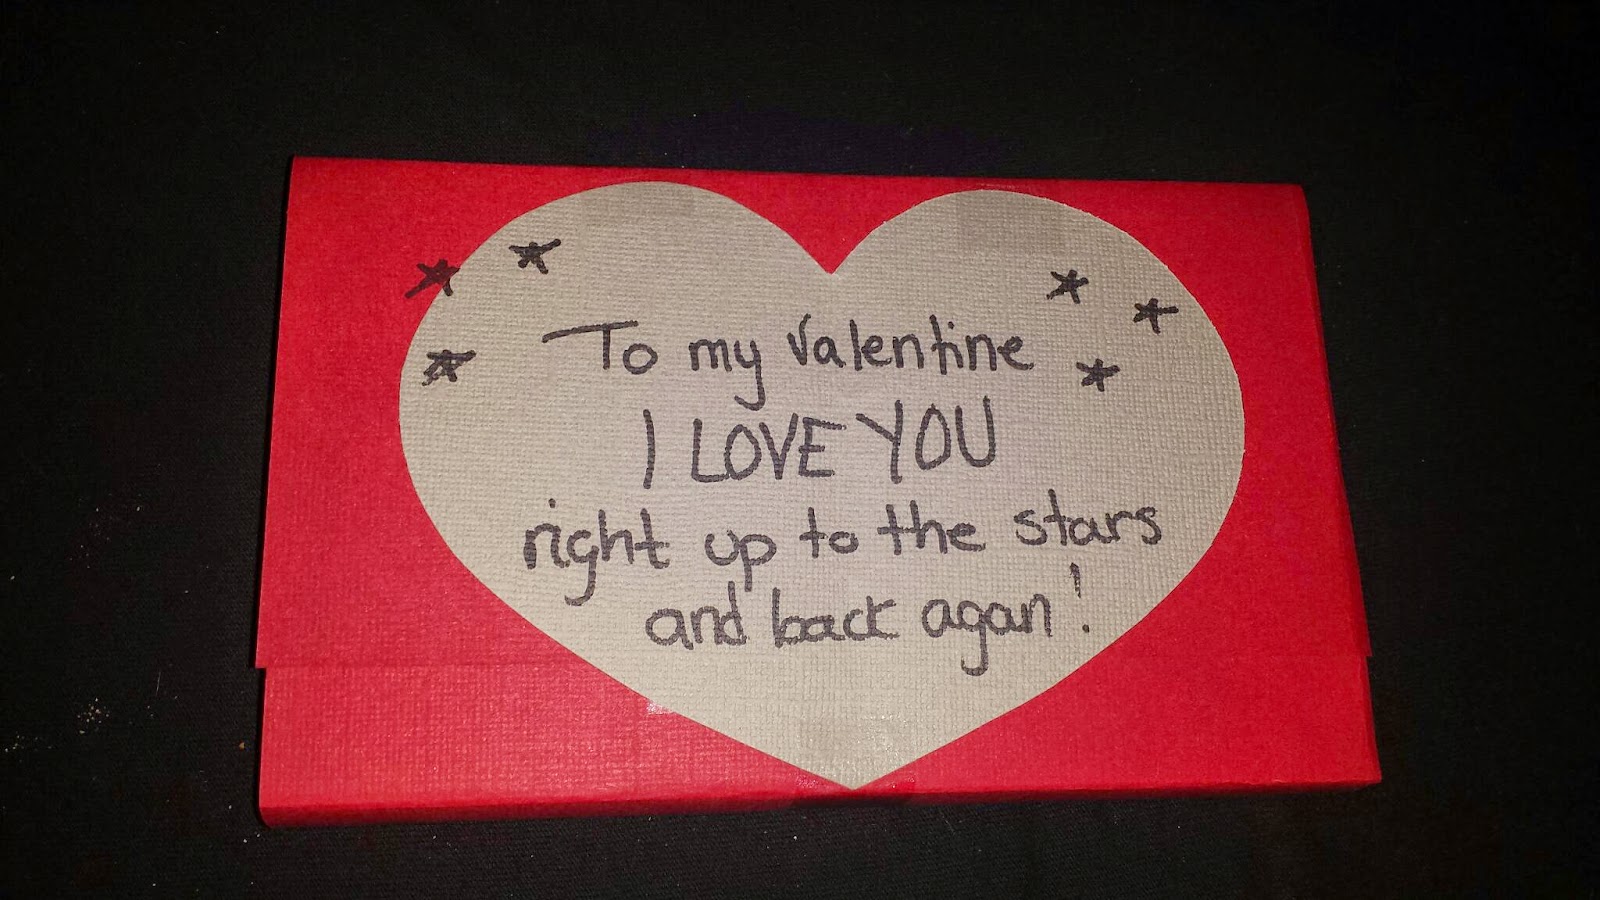 To my Valentine
I LOVE YOU
right up to the stars
and back again!